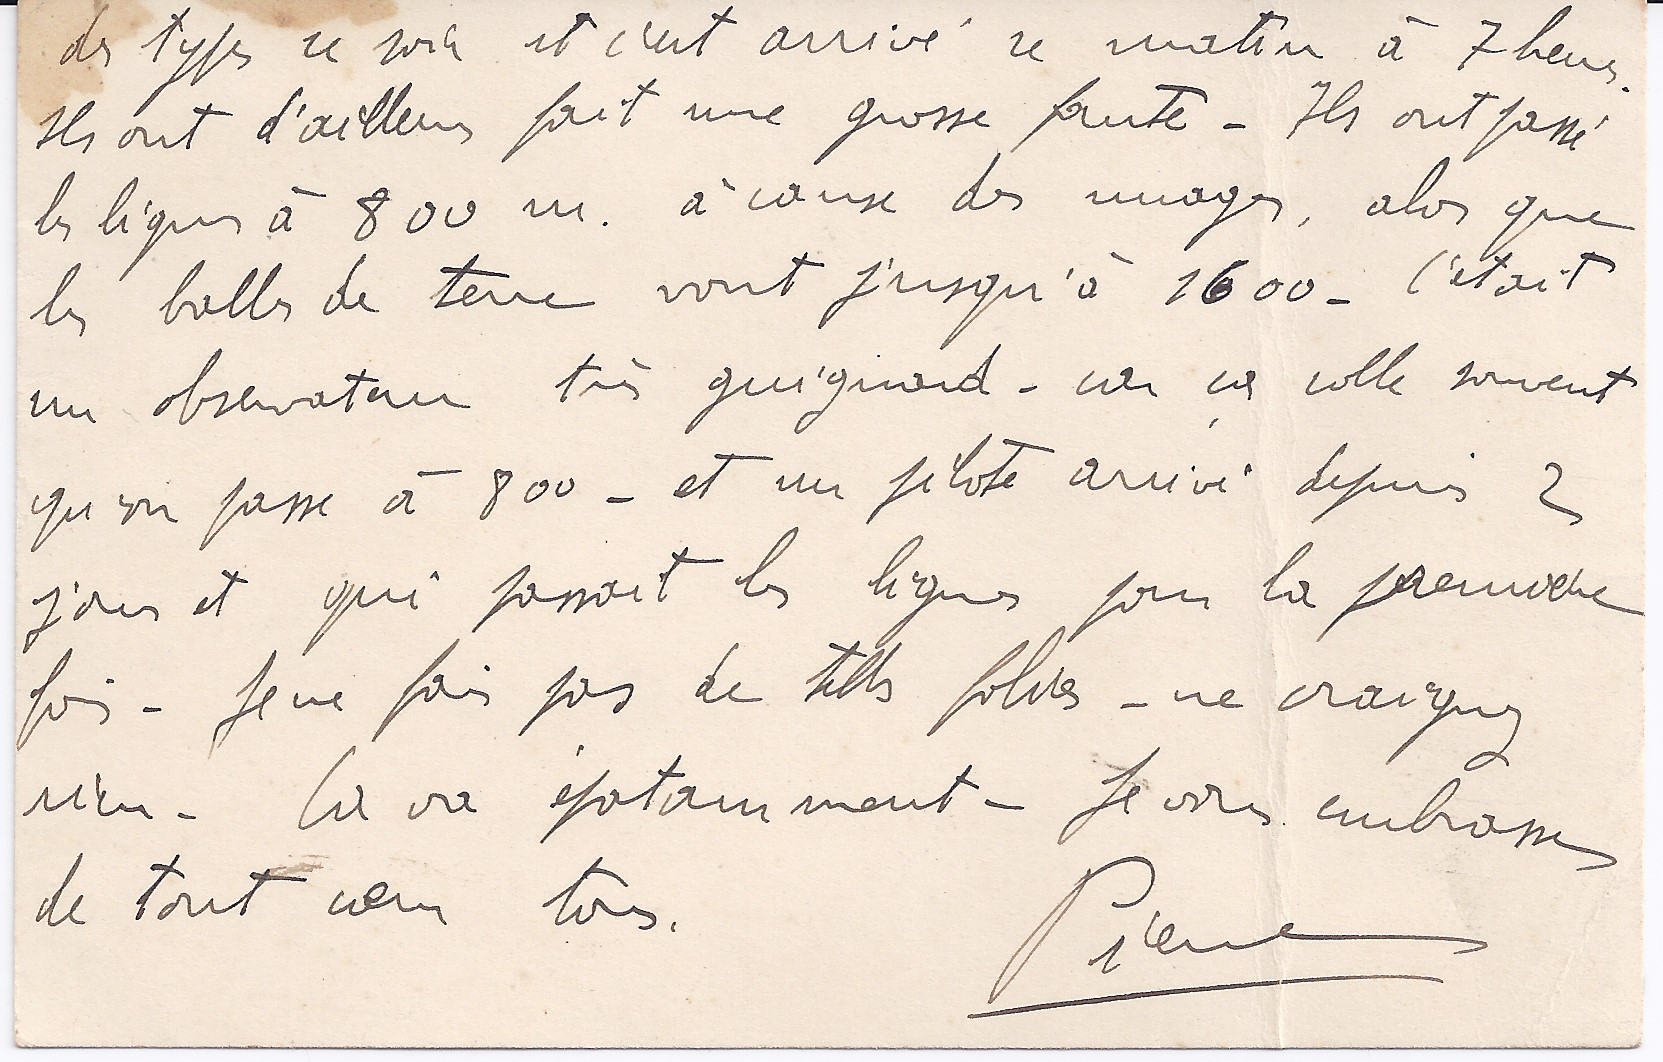 des types ce soir et c'est arrivé ce matin à 7 heures.
Ils ont d'ailleurs fait une grosse faute - Ils ont passé
les lignes à 800 m. à cause des nuages, alors que
les balles de terre vont jusqu'à 1600 - C'était
un observateur très guignard - car ça colle souvent
qu'on passe à 800 - et un pilote arrivé depuis 2
jours et qui passait les lignes pour la première
fois - Je ne fais pas de telles folies - ne craignez
rien - Ca va épatamment - Je vous embrasse
de tout cœur tous.
Pierre